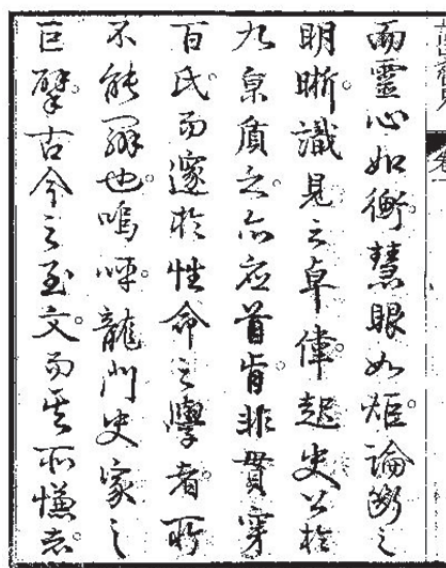 而靈心如衡。慧眼如炬。論斷之
明晰。識見之卓偉。起史公於
九泉質之。亦應首肯。非貫穿
百氏。而邃於性命之學者。所
不能也。嗚呼。龍門史家之
巨擘。古今之至文。而其所慊